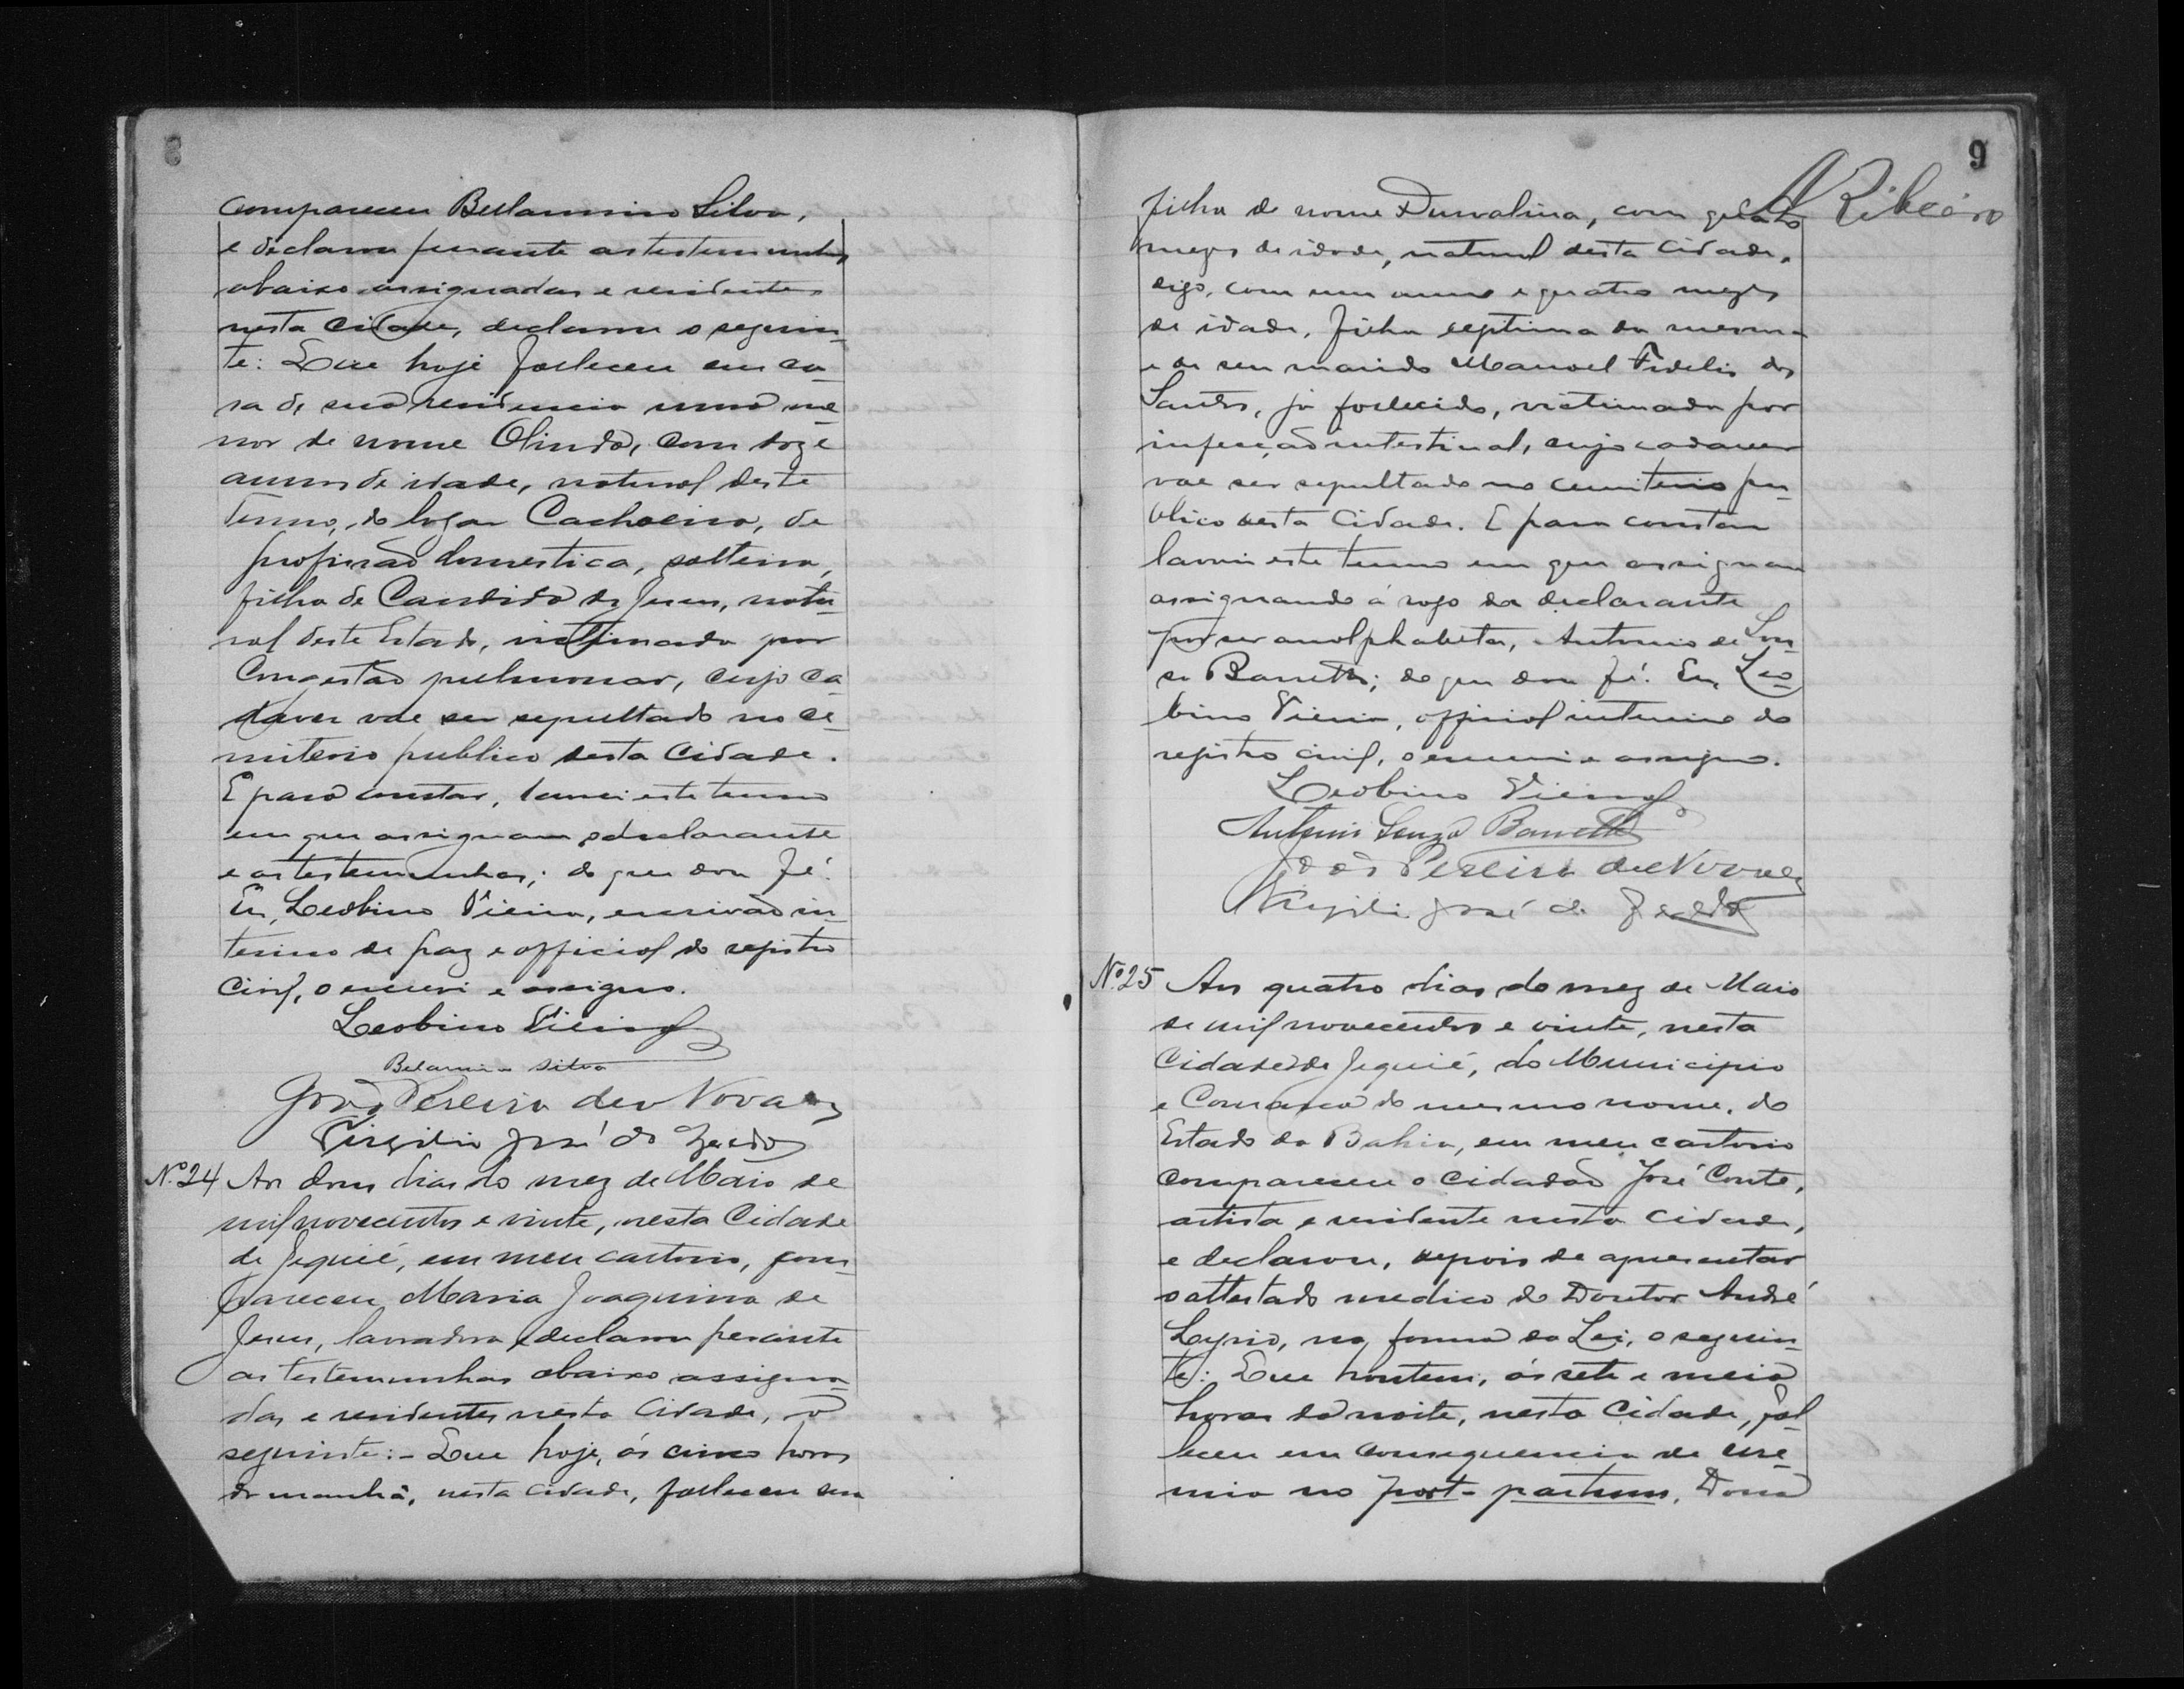 8
compareceu Bellarmino Silva,
e declarou perante as testemunhas
abaixo assignadas e residentes
nesta cidade, declarou o seguin-
te: Que hoje falleceu em ca-
sa de sua residencia uma me-
nor de nome Olinda, com doze
annos de idade, natural deste
termo, do logar Cachoeira, de
profissão domestica, solteira,
filha de Candida de Jesus, natu-
ral deste Estado, victimada por
congestão pulmonar, cujo ca-
daver vae ser sepultado no ce-
miterio publico desta cidade.
E para constar, lavrei este termo
em que assignam o declarante
e as testemunhas; do que dou fé.
Eu, Leobino Vieira, escrivão in-
terino de paz e official do registro
civil, o escrevi e assigno.
Leobino Vieira
Belarmino Silva
João Pereira de Novaes
Virgilio José de
Nº 24 Aos dous dias do mez de Maio de
mil novecentos e vinte, nesta Cidade
de Jequié, em meu cartorio, com-
pareceu Maria Joaquina de
Jesus, lavradora e declarou perante
as testemunhas abaixo assigna-
das e residentes nesta Cidade, o
seguinte:- Que hoje, ás cinco horas
da manhã, nesta cidade, falleceu sua
9
ARibeiro
filha de nome Durvalina, com quatro
mezes de idade, natural desta cidade,
digo, com um anno e quatro mezes
de idade, filha legitima da mesma
e de seu marido Manoel Fidelis dos
Santos, já fallecido, victimada por
infecção intestinal, cujo cadaver
vae ser sepultado no cemiterio pu-
blico desta cidade. E para constar
lavrei este termo em que assignam
assignando á rogo da declarante
por ser analphabeta, Antonio de Sou-
sa Barretto; do que dou fé. Eu, Leo-
bino Vieira, official interino do
registro civil, o escrevi e assigno.
Leobino Vieira
Antonio Souza Barretto
João Pereira de Novaes
Virgilio José de
Nº 25 Aos quatro dias do mez de Maio
de mil novecentos e vinte, nesta
Cidade de Jequié, do Municipio
e Comarca do mesmo nome, do
Estado da Bahia, em meu cartorio
compareceu o cidadão José Conte,
artista e residente nesta cidade,
e declarou, depois de apresentar
o attestado medico do Doutor André
Lyrio, na forma da Lei, o seguin-
te: Que hontem, ás sete e meia
horas da noite, nesta Cidade, fal-
leceu em consequencia de ure-
mia no post-partum, Dona